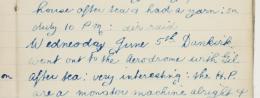 house after tea & had a yarn: on
duty 10 P.m: air raid
Wednesday June 5th Dunkirk
went out to the Aerodrome with
on
After tea: very interesting: the H.P.
are a monster machine alright &